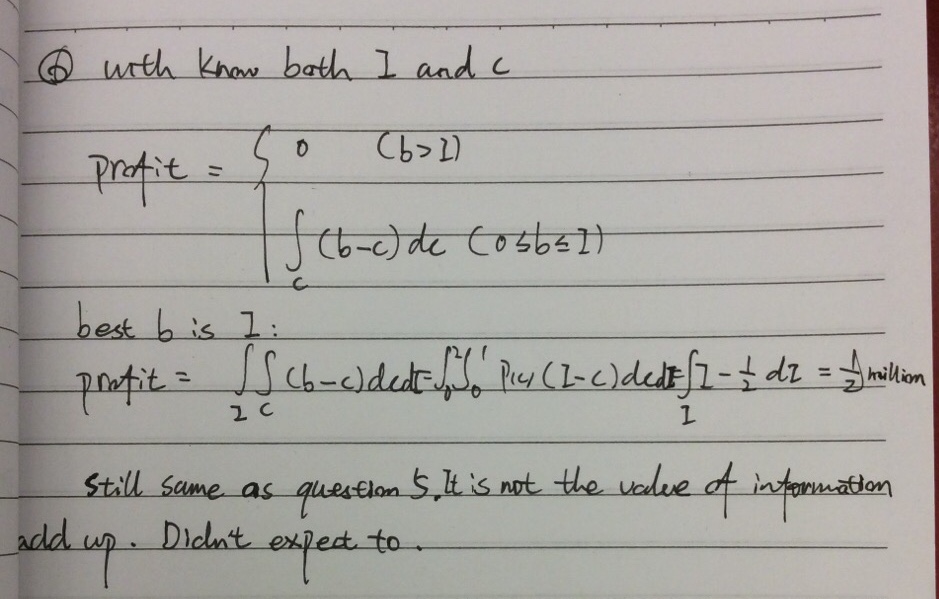 ⑥ with know both I and c
profit = { 0 (b>I)
∫_c (b-c) dc (0≤b≤I)
best b is I:
profit = ∫_I ∫_c (b-c) dcdI = ∫_0^2 ∫_0^1 P(c) (I-c) dcdI = ∫_I I - 1/2 dI = 1/2 million
still same as question 5. It is not the value of information
add up. Didn't expect to.